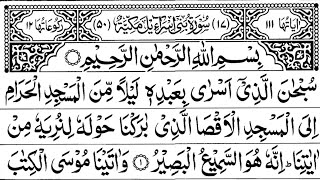 اٰیاتها ۱۱۱ (۱۷) سُوْرَةُ بَنِیْۤ اِسْرَآءِیْلَ مَکِّیَّةٌ (۵۰) رکوعاتها ۱۲
بِسْمِ اللّٰهِ الرَّحْمٰنِ الرَّحِیْمِ
سُبْحٰنَ الَّذِیْۤ اَسْرٰی بِعَبْدِهٖ لَیْلًا مِّنَ الْمَسْجِدِ الْحَرَامِ
اِلَی الْمَسْجِدِ الْاَقْصَا الَّذِیْ بٰرَكْنَا حَوْلَهٗ لِنُرِیَهٗ مِنْ
اٰیٰتِنَا ؕ اِنَّهٗ هُوَ السَّمِیْعُ الْبَصِیْرُ ۝۱ وَ اٰتَیْنَا مُوْسَی الْكِتٰبَ